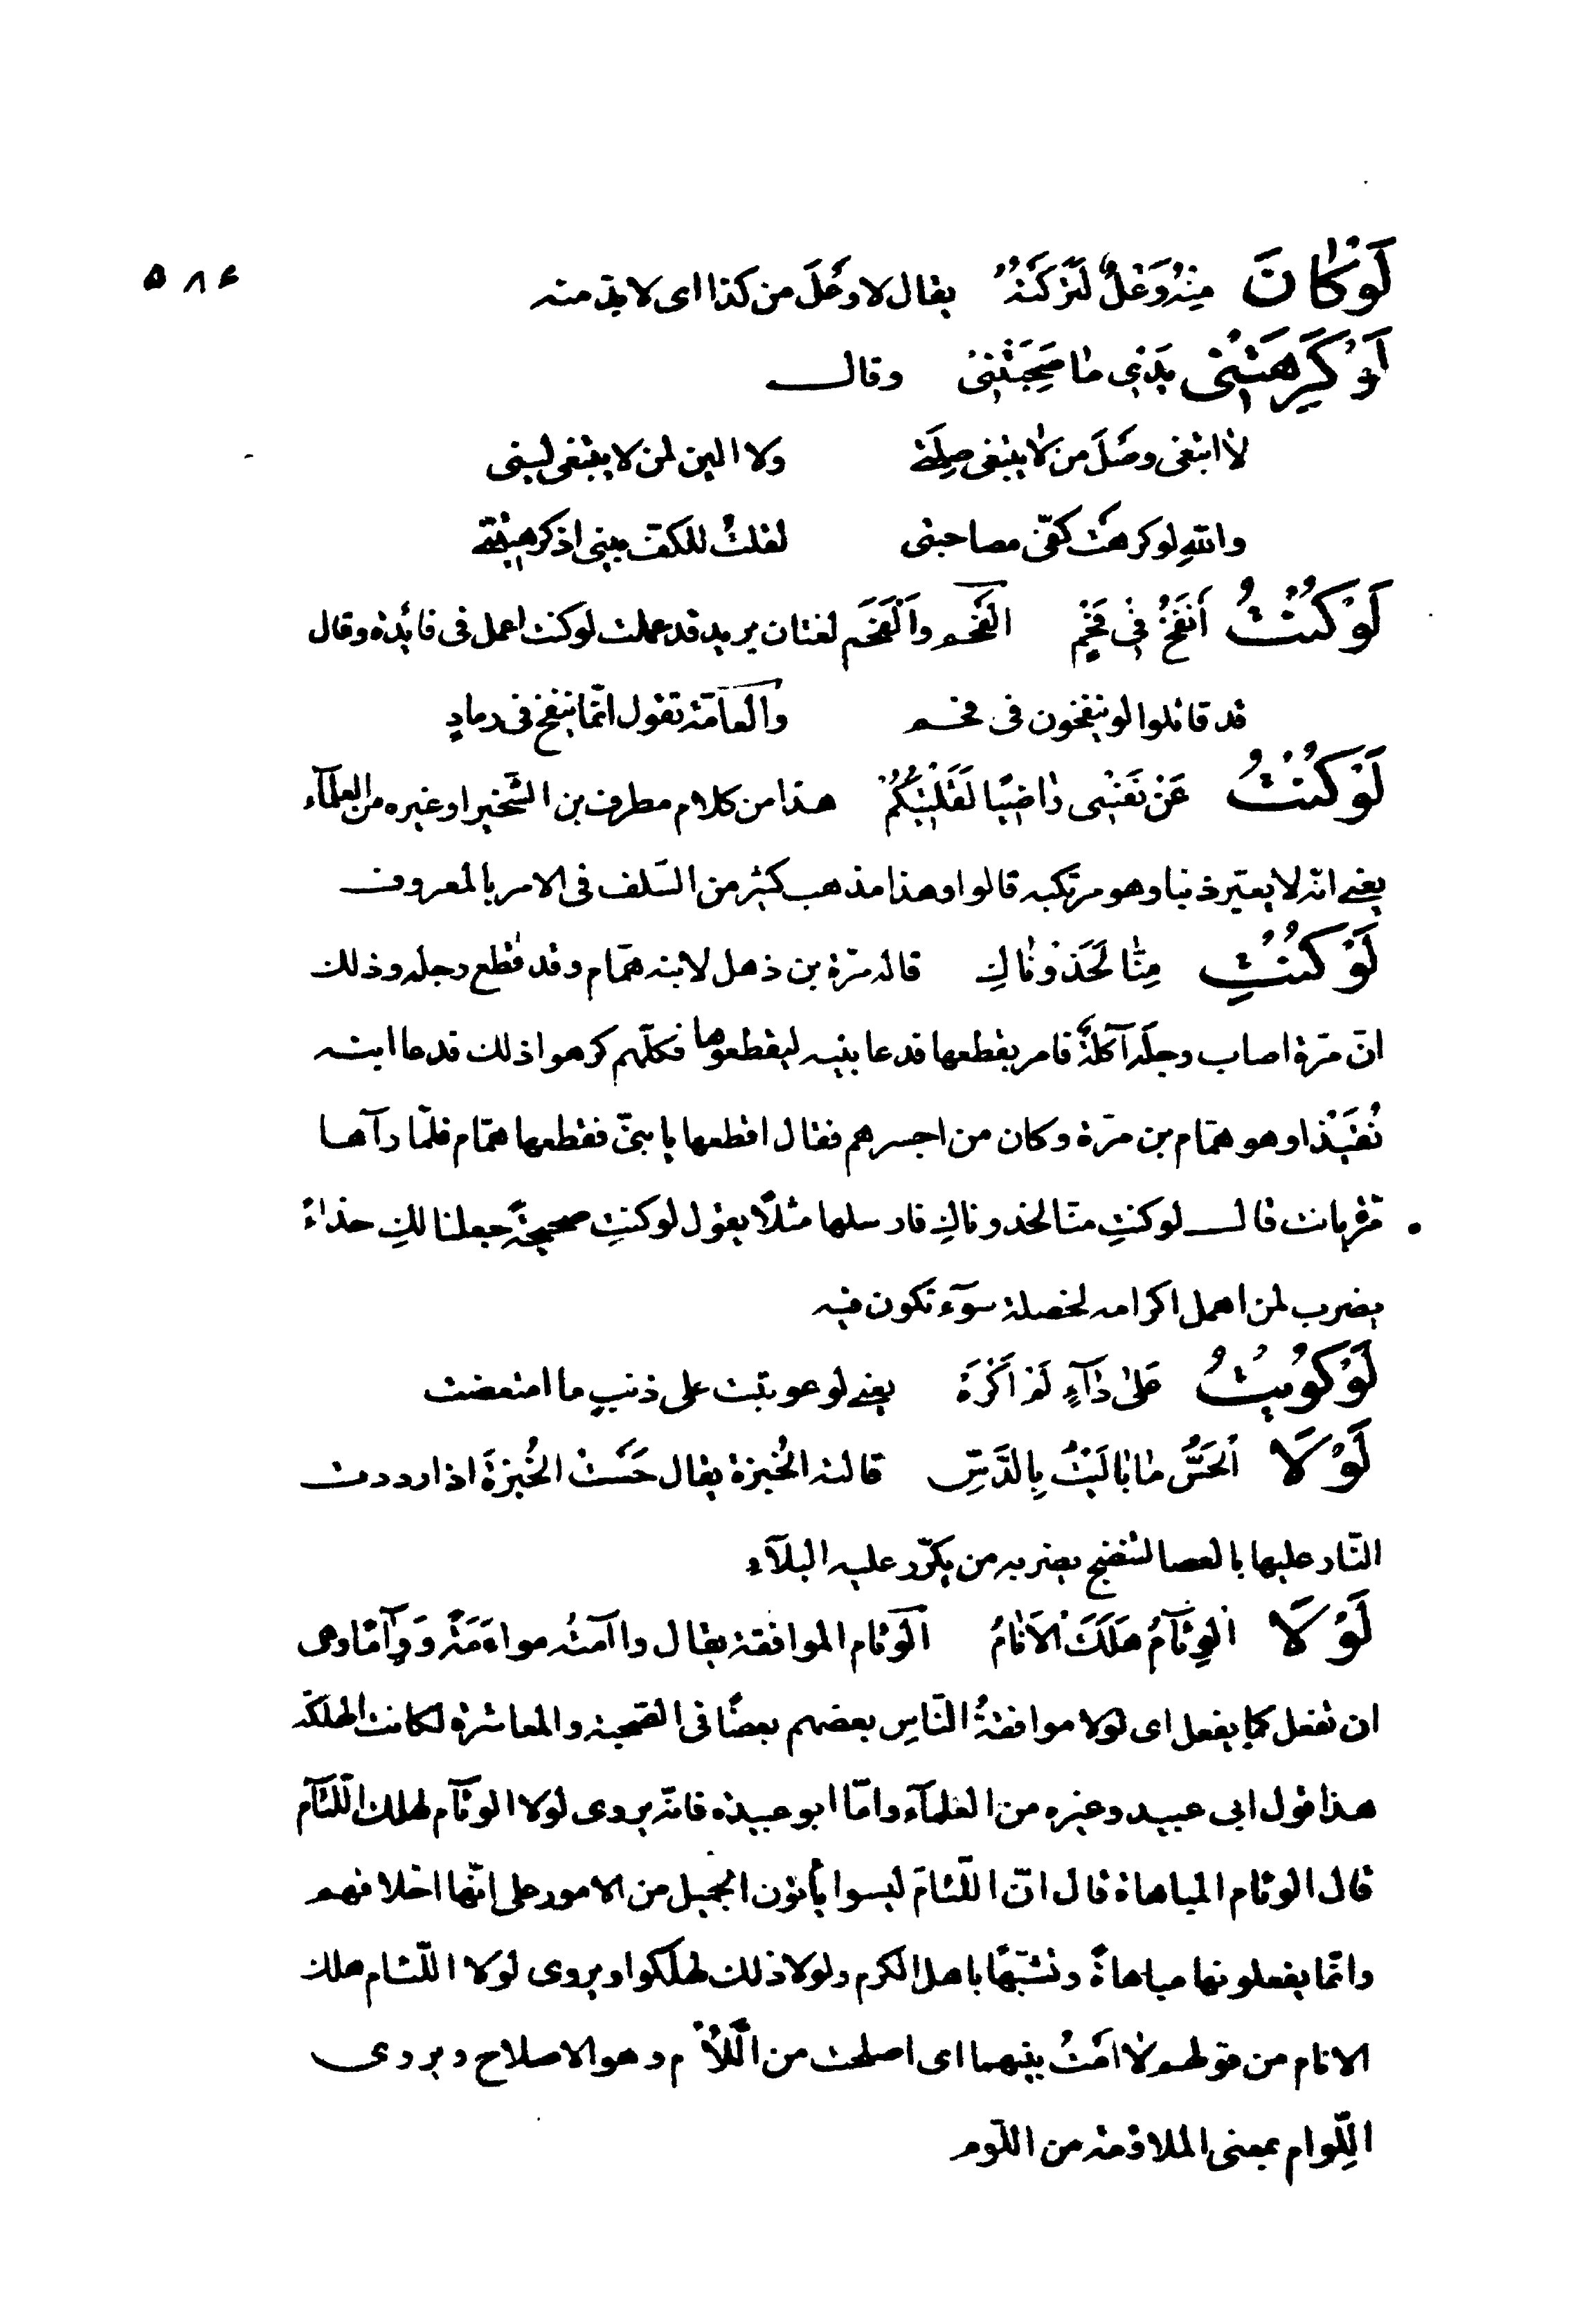 ۵۸۶
لَوْ كٰانَ مِنْهُ وَعْلٌ لَتَرَكْتُهُ يقال لا وَعْلَ من كذا اى لا بدّ منه
لَوْ كَرِهَتْنِى يَدِى مٰا صَحِبَتْنِى وقال
لا ابتغى وصْلَ من لا يبتغى صِلَتى ولا الين لمن لا يبتغى لينى
والله لو كرهت كفّى مصاحبتى لقلتُ للكفّ بينى اذ كرهتينى
لَوْ كُنْتُ اَنْفَخُ فِى فَحْمٍ الفَحْم والْفَحَم لغتان يريد قد عملت لو كنت اعمل فى فائدة وقال
قد قاتلوا لو ينفخون فى فحم والعامّة تقول انّما ينفخ فى رمادٍ
لَوْ كُنْتُ عَنْ نَفْسِى رٰاضِيًا لَقَلَيْتُكُمْ هذا من كلام مطرف بن الشّخير او غيره من العلمآء
يعنى انّه لا يعيّر ذنبا وهو مرتكبه قالوا وهذا مذهب كثير من السّلف فى الامر بالمعروف
لَوْ كُنْتِ مِنّٰا لَحَذَوْنٰاكِ قاله مرّة بن ذهل لابنه همّام وقد قطع رجله وذلك
انّ مرّة اصاب رجلَه آكلةٌ فامر بقطعها فدعا بنيه ليقطعوها فكلّهم كرهوا ذلك فدعا ابنه
نُقَيْذا وهو همّام بن مرّة وكان من اجسرهم فقال اقطعها يا بنىّ فقطعها همّام فلمّا رآها
مرّة بانت قال لو كنتِ منّا لحذوناكِ فارسلها مثلًا يقول لو كنتِ صحيحةً جعلنا لكِ حذاءً
يضرب لمن اهمل اكرامه لخصلة سوٓء تكون فيه
لَوْ كُوِيتُ عَلىٰ دٰآءٍ لَمْ اَكْرَهْ يعنى لو عوتبت على ذنبٍ ما امتعضت
لَوْلَا الْحَسُّ مٰا بٰالَيْتُ بِالدَّسِّ قالته الخُبزة يقال حَسَسْت الخُبزَةَ اذا رددت
النّار عليها بالعصا لتنضج يضربه من يكرّر عليه البلآء
لَوْلَا الْوِئٰآمُ هَلَكَ الْاَنٰامُ الوئام الموافقة يقال واامتُه مواءَمَةً ووِآمًا وهى
ان تفعل كما يفعل اى لولا موافقةُ النّاسِ بعضهم بعضًا فى الصّحبة والمعاشرة لكانت الهلكة
هذا قول ابى عبيد وغيره من العلمآء وامّا ابو عبيدة فانّه يروى لولا الوئآم لهلك اللّئآم
قال الوئام المباهاة قال انّ اللّئامَ ليسوا يأتون الجميل من الامور على انّها اخلاقهم
وانّما يفعلونها مباهاةً وتشبّهًا باهل الكرم ولولا ذلك لهلكوا ويروى لولا اللّئام هلك
الانام من قولهم لأامْتُ بينهما اى اصلحت من اللَّأْم وهو الاصلاح ويروى
اللِّوام بمعنى الملاومة من اللّوم